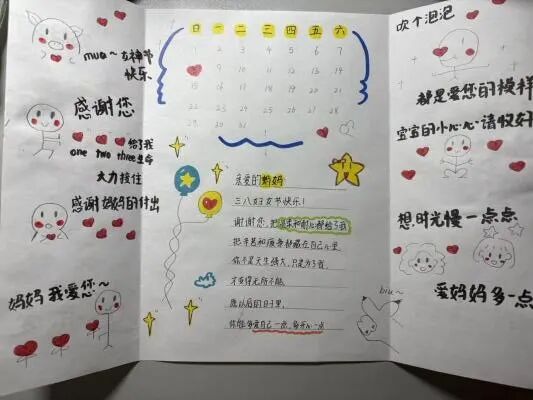 mua~ 女神节
快乐
感谢您
给了我
one two three 生命
大力接住
感谢妈妈的付出
妈妈 我爱您~
日 一 二 三 四 五 六
1 2 3 4 5 6 7
9 10 11 12 13 14
15 16 17 18 19 20 21
22 23 24 25 26 27 28
30 31
亲爱的妈妈
三八妇女节快乐!
谢谢您,把温柔和耐心都给了我
把辛苦和疲惫都藏在自己心里
你不是天生强大,只是为了我
才变得无所不能
愿以后的日子里,
你能多爱自己一点,多开心一点
吹个泡泡
都是爱您的模样
宝宝的小心心请收好
想时光慢一点点
biu~
爱妈妈多一点